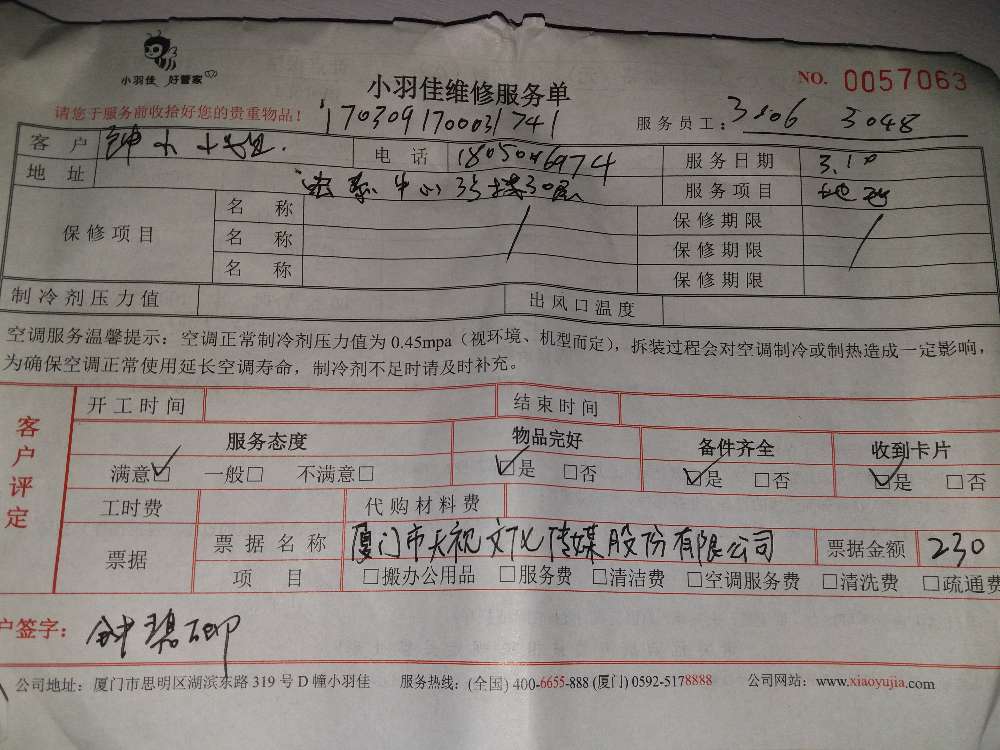 小羽佳 好管家
小羽佳维修服务单
NO. 0057063
请您于服务前收拾好您的贵重物品!
170309170031741
服务员工: 3806 3048
客户 钟
电话
服务日期 3.10
地址 中心35楼30层
服务项目
保修项目
名称 保修期限
名称 保修期限
名称 保修期限
制冷剂压力值 出风口温度
空调服务温馨提示:空调正常制冷剂压力值为0.45mpa(视环境、机型而定),拆装过程会对空调制冷或制热造成一定影响,
为确保空调正常使用延长空调寿命,制冷剂不足时请及时补充。
客户评定
开工时间 结束时间
服务态度 物品完好 备件齐全 收到卡片
满意☑ 一般□ 不满意□ ☑是 □否 ☑是 □否 ☑是 □否
工时费 代购材料费
票据
票据名称 厦门市大视文化传媒股份有限公司 票据金额 230
项目 □搬办公用品 □服务费 □清洁费 □空调服务费 □清洗费 □疏通费
户签字: 钟碧
公司地址:厦门市思明区湖滨东路319号D幢小羽佳 服务热线:(全国)400-6655-888 (厦门)0592-5178888 公司网站:www.xiaoyujia.com